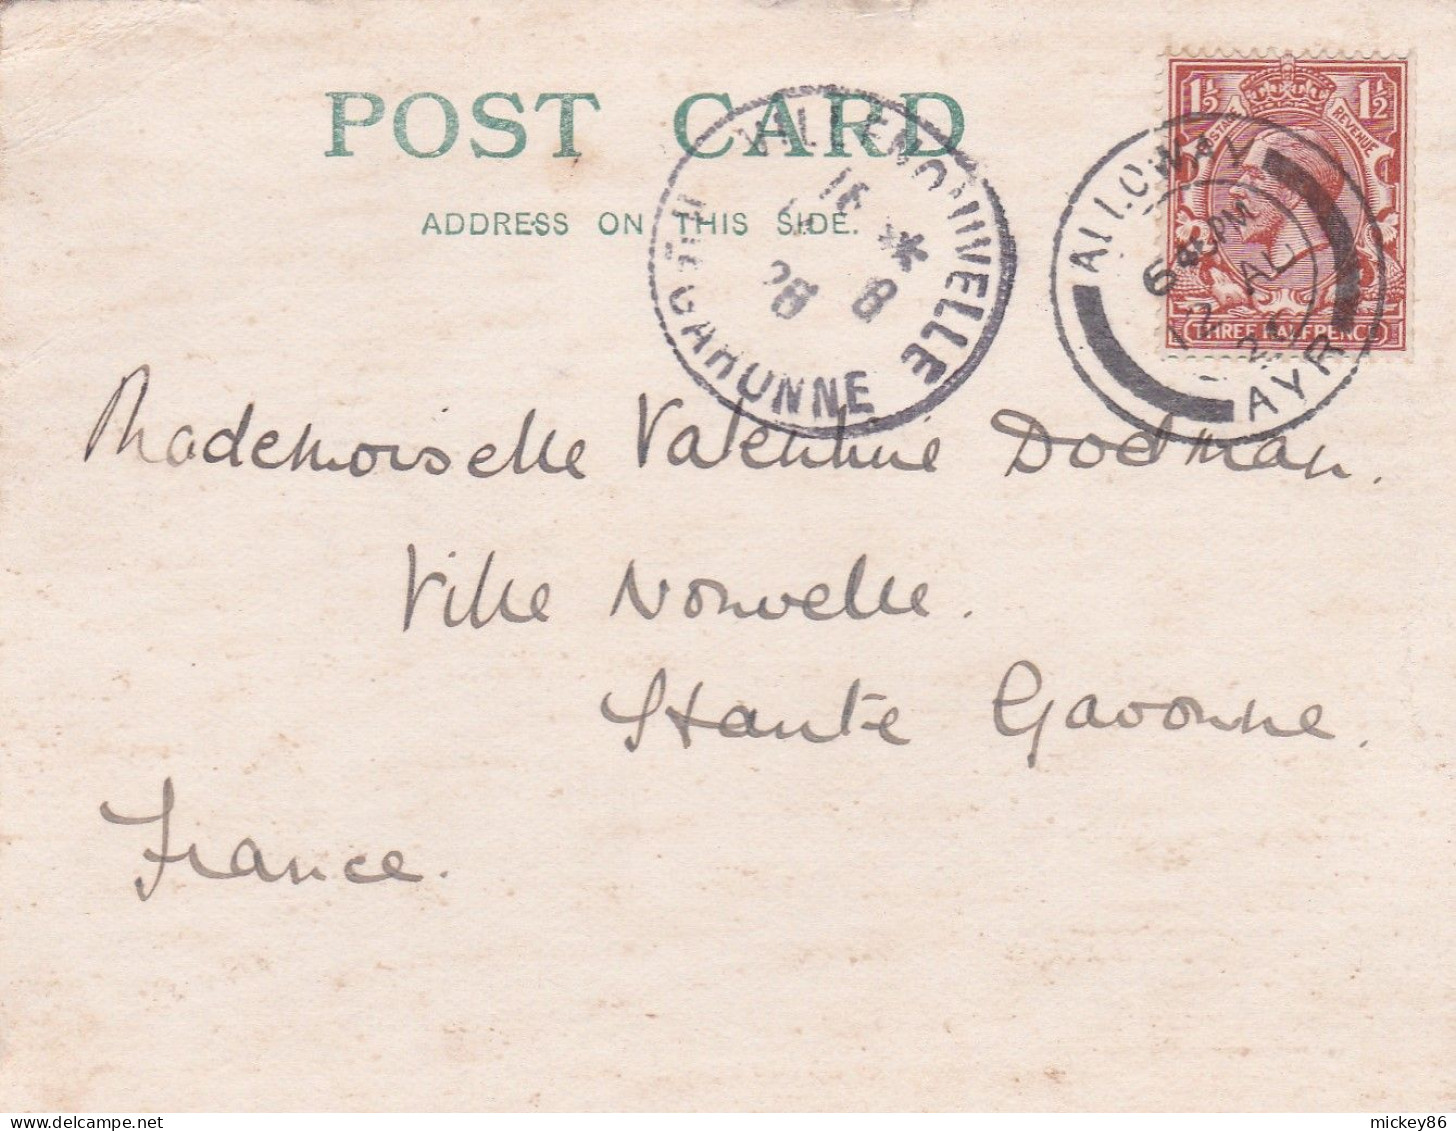 POST CARD
ADDRESS ON THIS SIDE.
VILLENOUVELLE
16
28
8
GARONNE
1½ 1½
POSTAGE REVENUE
THREE HALFPENCE
ALLOWAY
6 45 PM
12 AU
AYR
Mademoiselle Valentine Dodman.
Ville Nouvelle.
Haute Garonne.
France.
mickey86